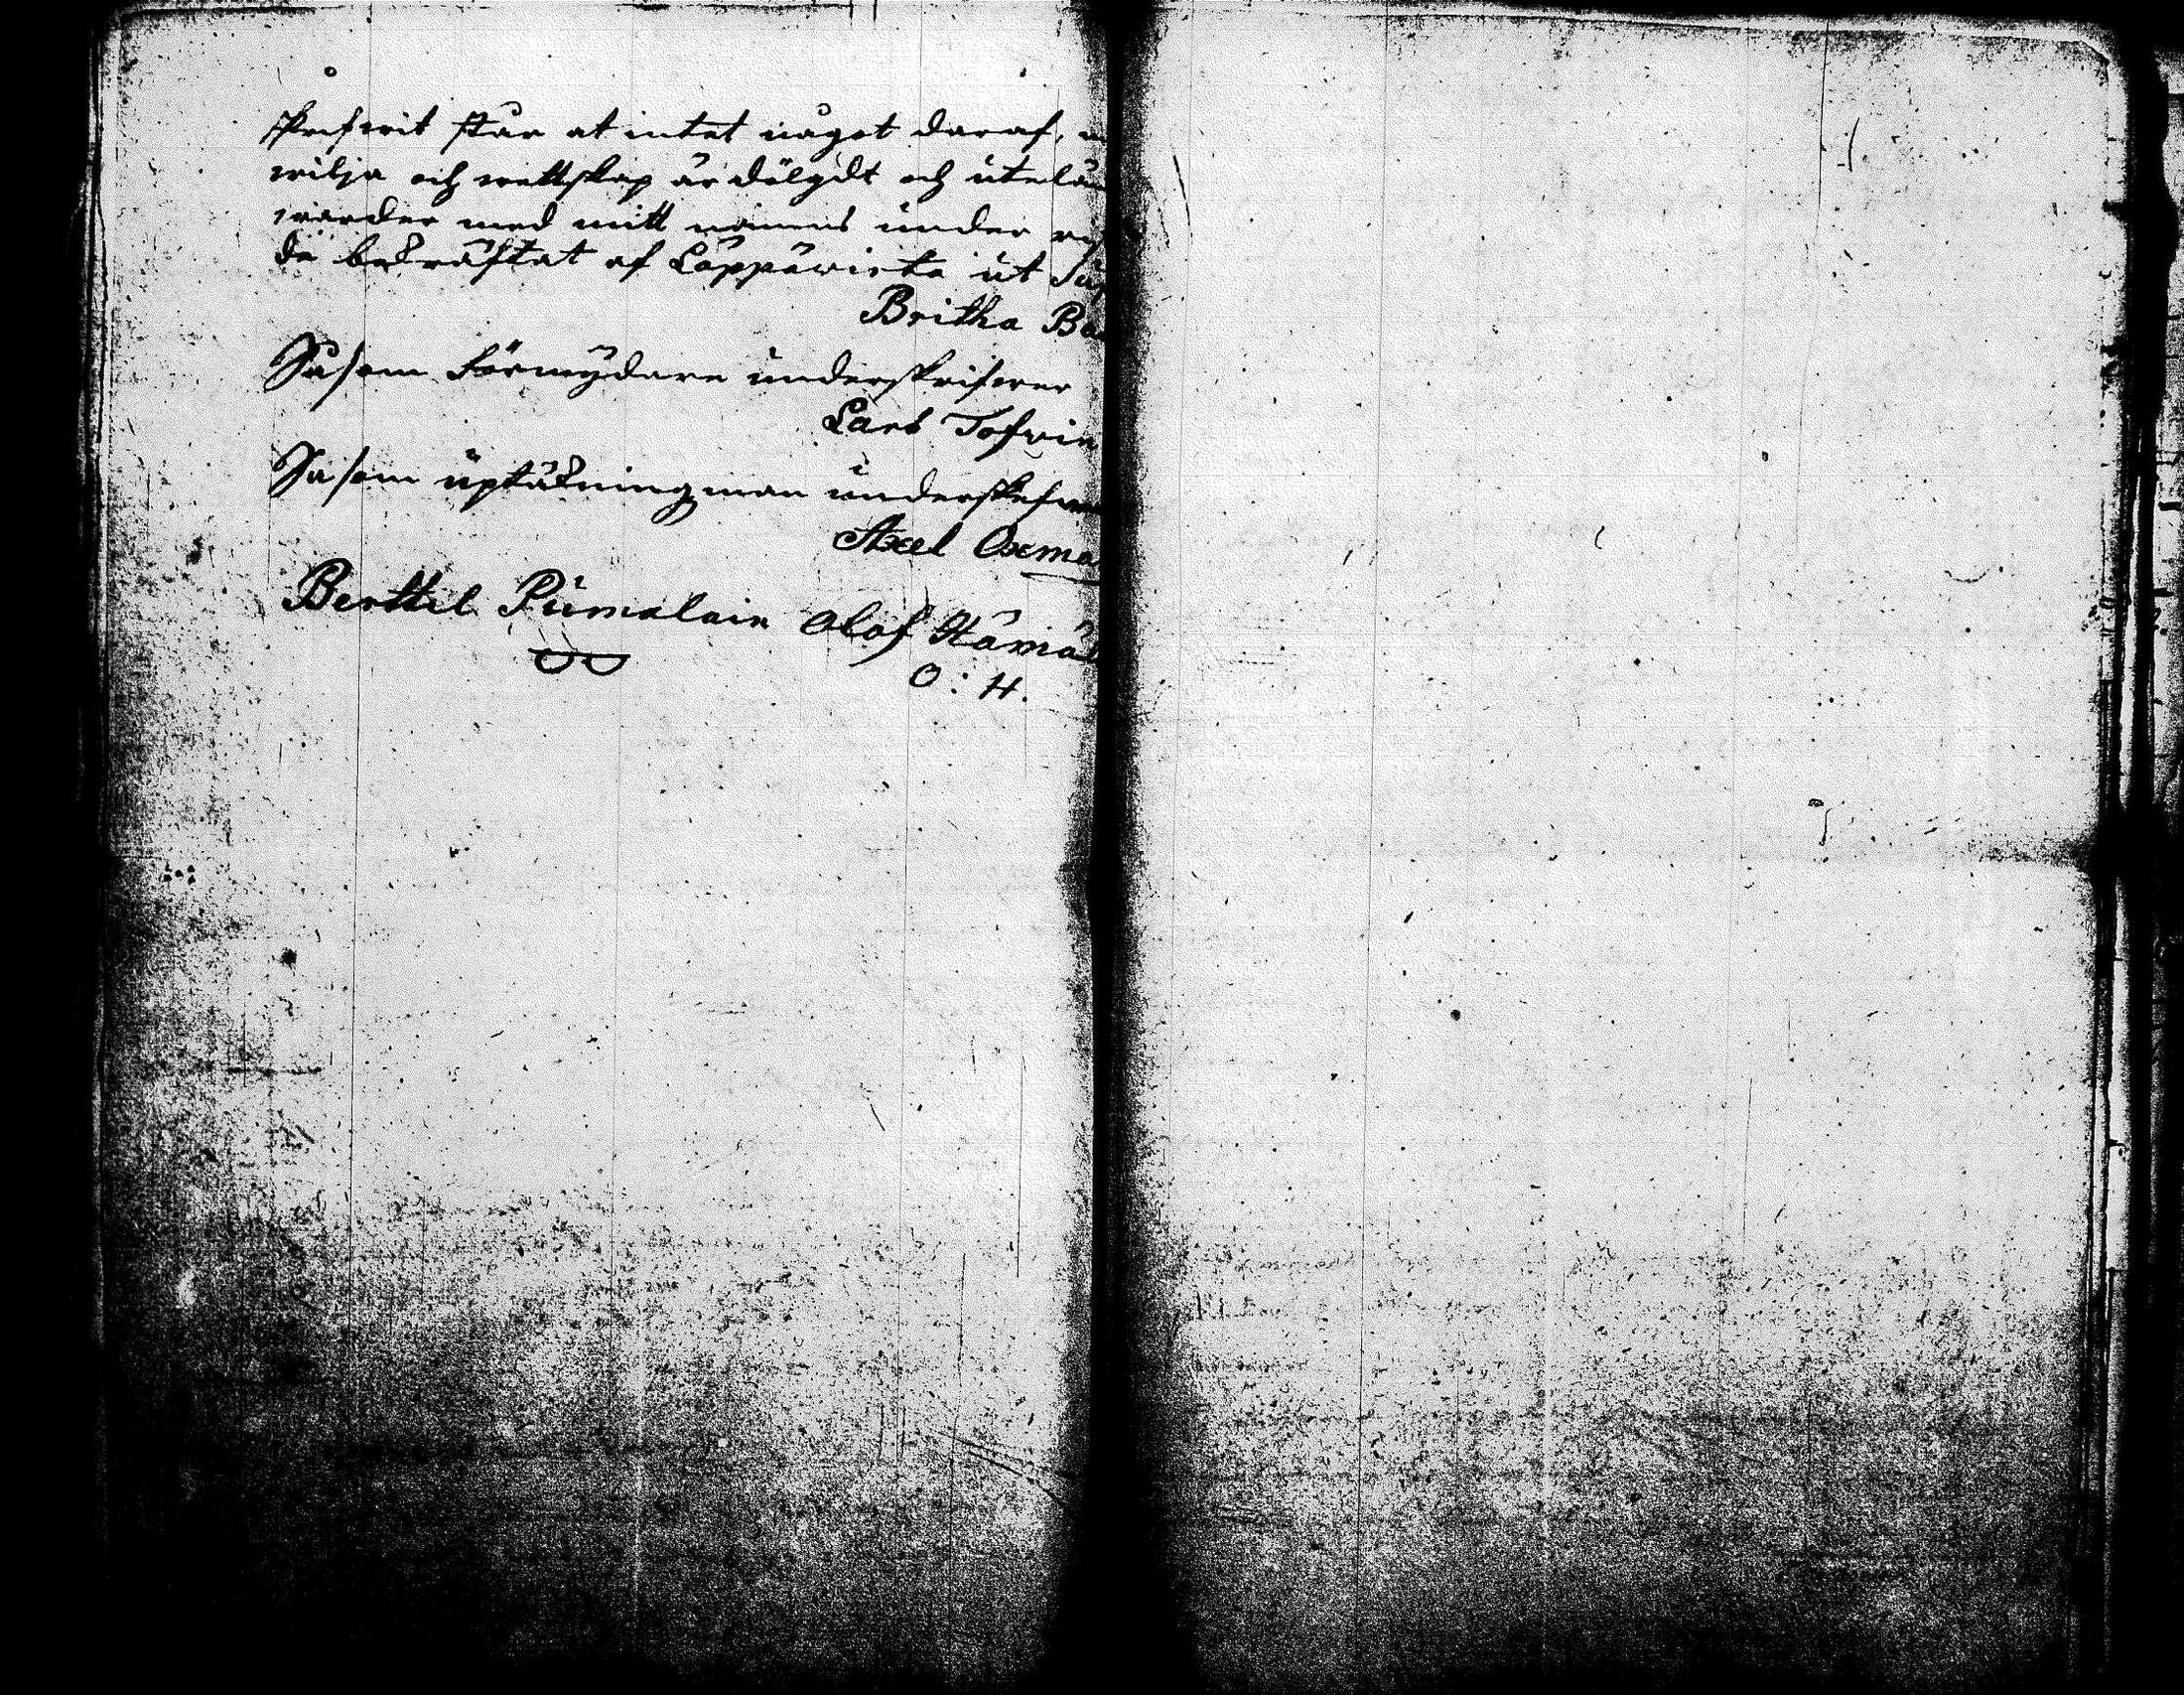 skrefwit står at intet något daraf,
wilja och wettskap är dölgdt och utelä
warder med mitt namns under
de bekräftat af Läppäwirta ut Su
Britha Ba
Såsom Förmÿdare underskrifwer
Lars Tofwin
Såsom üptäkningzman underskefwer
Axel Oxma
Berttil Pümalain Olof Hämäl
O : H.